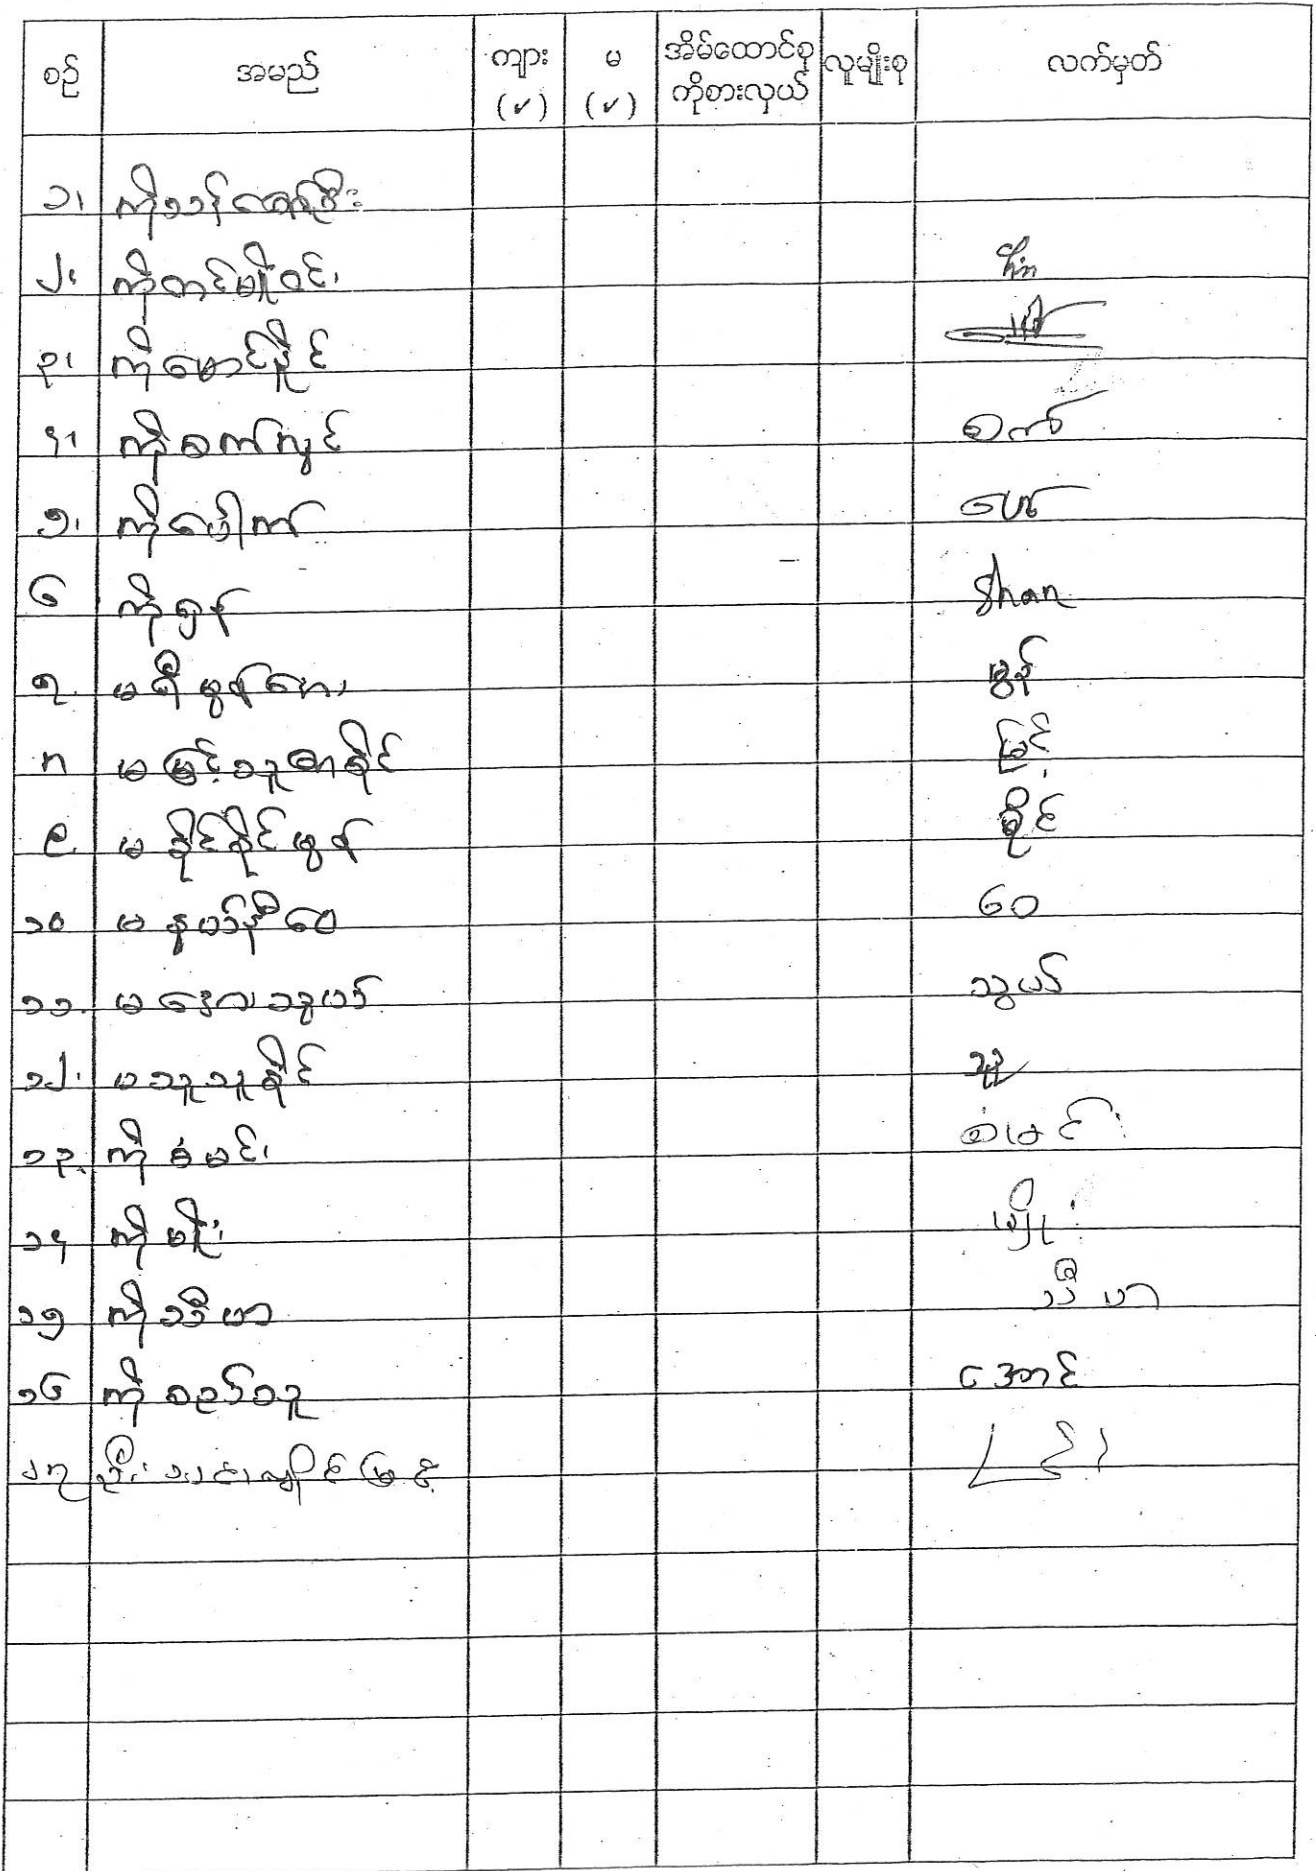 စဉ် အမည် ကျား (✓) မ (✓) အိမ်ထောင်စု ကိုစားလှယ် လူမျိုးစု လက်မှတ်
၁၊ ကိုသန်ဇော်ဦး
၂၊ ကိုတင်မျိုးဝင်း
၃၊ ကိုမောင်နိုင်
၄၊ ကိုစက်လွင် စက်
၅၊ ကိုပေါက် ပေါ်
၆ ကိုရှန် Shan
၇. မရီမွန်အေး မွန်
၈ မမြင့်သူဇာခိုင် မြင့်
၉ မခိုင်ခိုင်မွန် ခိုင်
၁၀ မနွယ်နီဝေ ဝေ
၁၁. မဒေလသွယ် သွယ်
၁၂. မသူသူခိုင် သူ
၁၃. ကိုစံမင်း စံမင်း
၁၄ ကိုမျိုး မျိုး
၁၅ ကိုသီဟ သီဟ
၁၆ ကိုစည်သူ အောင်
၁၇ ဦး